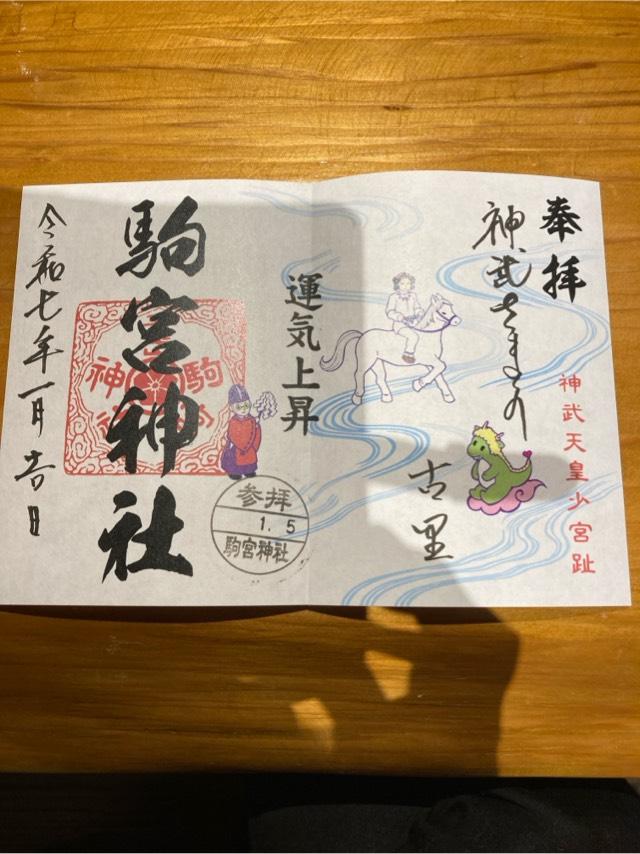 奉拝
神武さまの
古里
神武天皇少宮趾
運気上昇
駒宮神社
令和七年一月吉日
参拝
1.5
駒宮神社